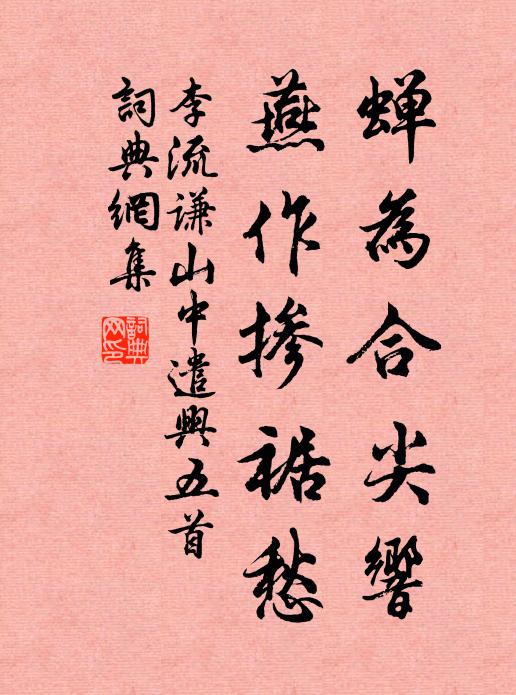 蝉為合尖響
燕作摻裾愁
李流謙山中遣興五首
詞典網集
詞典網印